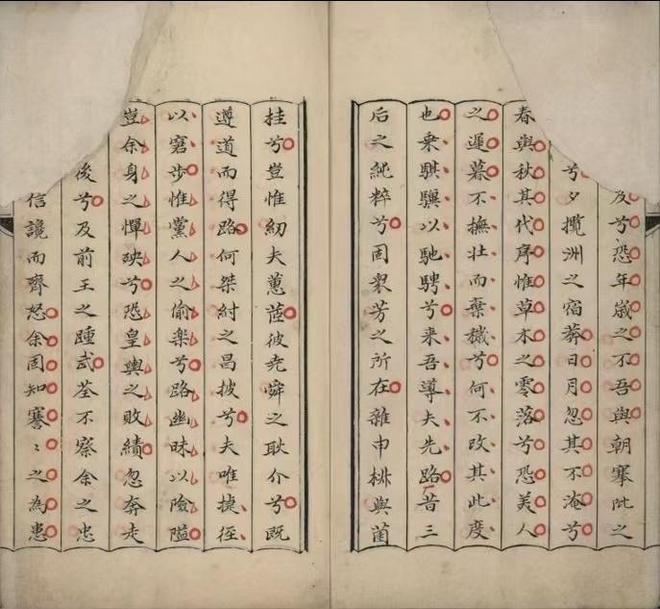 及兮恐年歲之不吾與朝搴阰之
兮夕攬洲之宿莽日月忽其不淹兮
春與秋其代序惟草木之零落兮恐美人
之遲暮不撫壯而棄穢兮何不改其此度
也乘騏驥以馳騁兮来吾導夫先路昔三
后之純粹兮固衆芳之所在雜申椒與菌
挂兮豈惟紉夫蕙茝彼尭舜之耿介兮既
遵道而得路何桀紂之昌披兮夫唯捷徑
以窘步惟黨人之偷樂兮路幽昧以險隘
豈余身之憚殃兮恐皇輿之敗績忽奔走
後兮及前王之踵武荃不察余之忠
信讒而齊怒余固知謇〻之為患